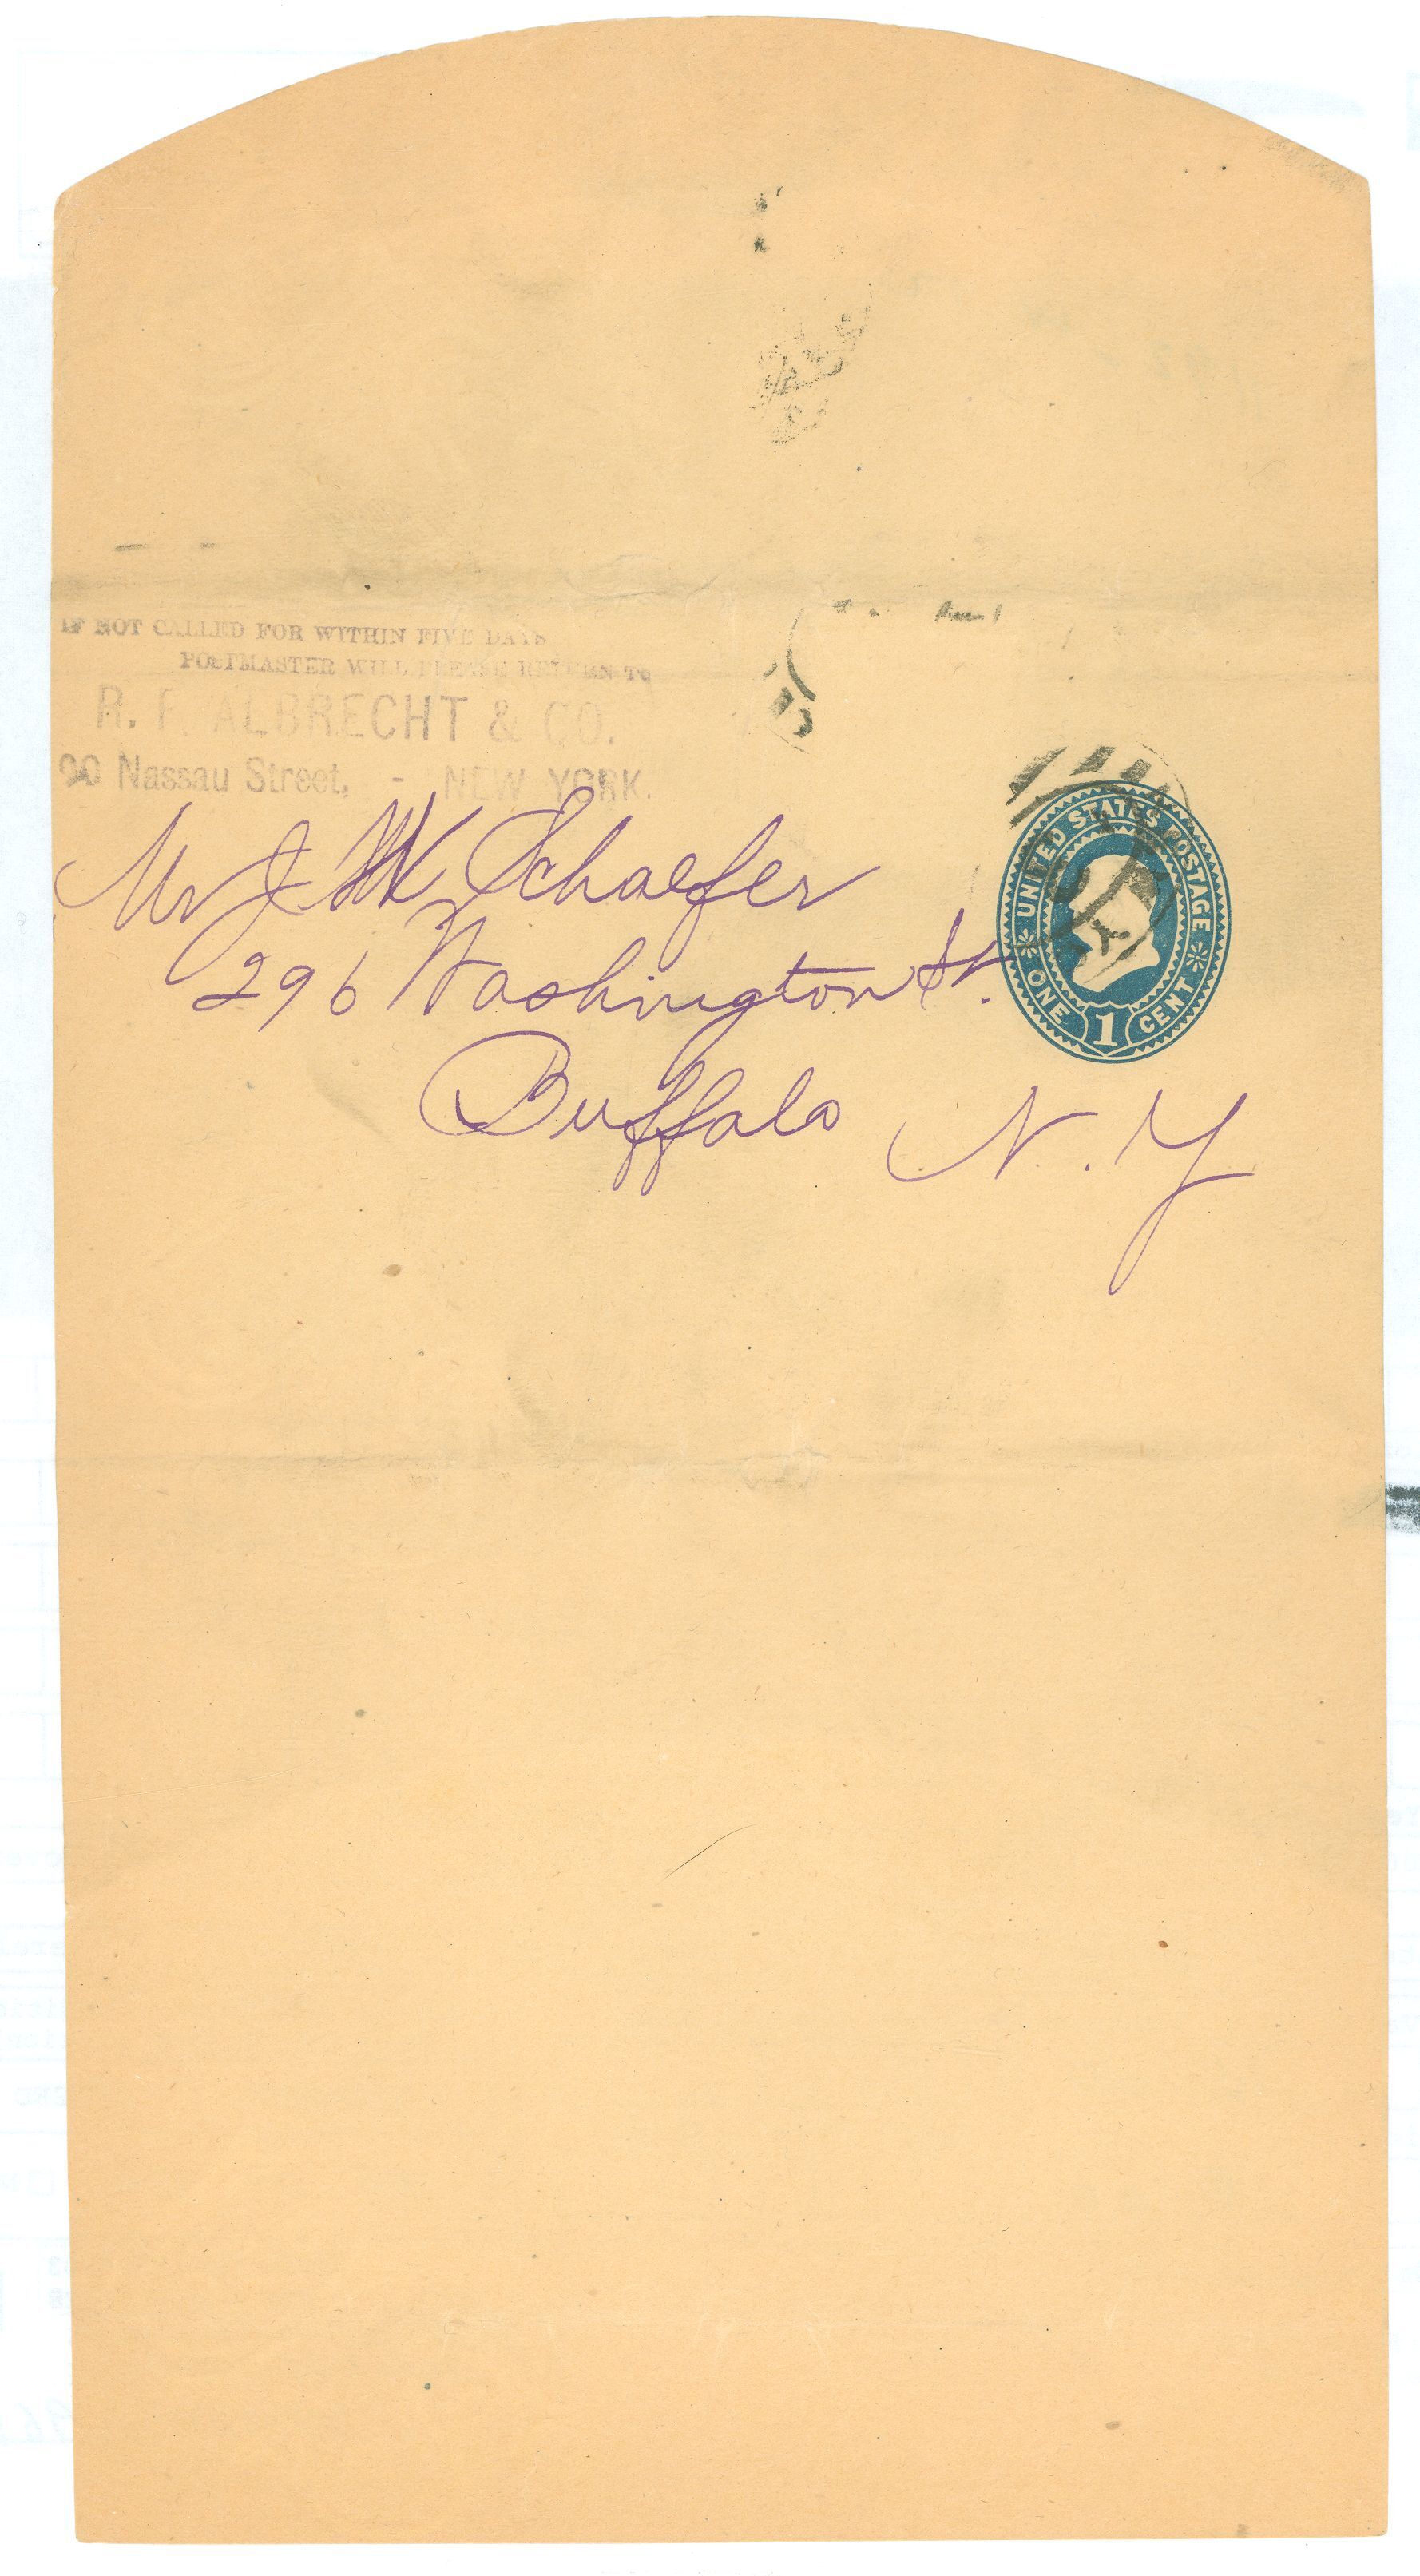 IF NOT CALLED FOR WITHIN FIVE DAYS
POSTMASTER WILL PLEASE RETURN TO
R. F. ALBRECHT & CO.
90 Nassau Street, - NEW YORK.
Mr J W Schaefer
296 Washington St.
Buffalo N. Y
UNITED STATES POSTAGE
ONE 1 CENT